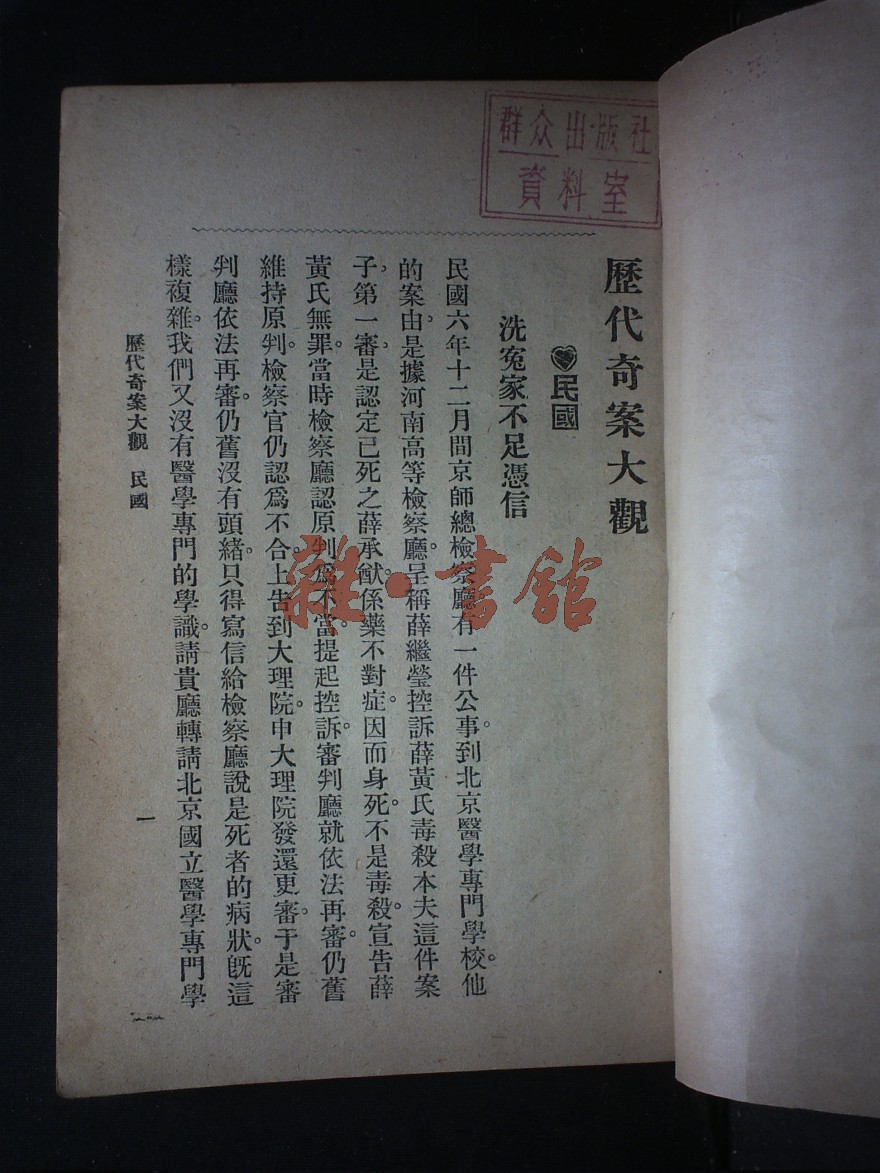 群众出版社
資料室
歷代奇案大觀
民國
洗冤家不足憑信
民國六年十二月間京師總檢察廳有一件公事。到北京醫學專門學校。他
的案由。是據河南高等檢察廳。呈稱薛繼瑩控訴薛黃氏毒殺本夫這件案
子。第一審。是認定已死之薛承猷。係藥不對症。因而身死。不是毒殺。宣告薛
黃氏無罪。當時檢察廳認原判爲不當。提起控訴。審判廳就依法再審。仍舊
維持原判。檢察官仍認爲不合。上告到大理院。由大理院發還更審。于是審
判廳依法再審。仍舊沒有頭緒。只得寫信給檢察廳說是死者的病狀。旣這
樣複雜。我們又沒有醫學專門的學識。請貴廳轉請北京國立醫學專門學
歷代奇案大觀 民國
一
雜·書館